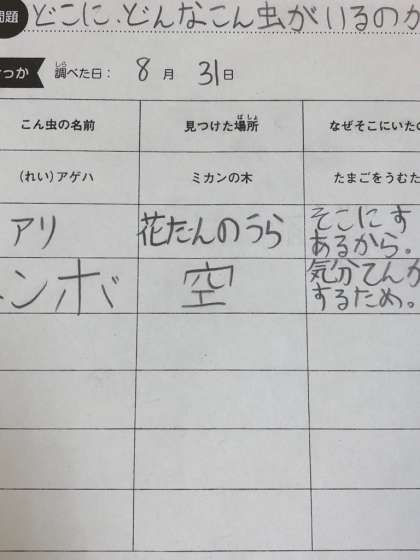 問題 どこに、どんなこん虫がいるのか
っか 調べた日： 8 月 31 日
こん虫の名前 見つけた場所 なぜそこにいたの
(れい)アゲハ ミカンの木 たまごをうむた
アリ 花だんのうら そこにす
あるから。
ンボ 空 気分てんか
するため。